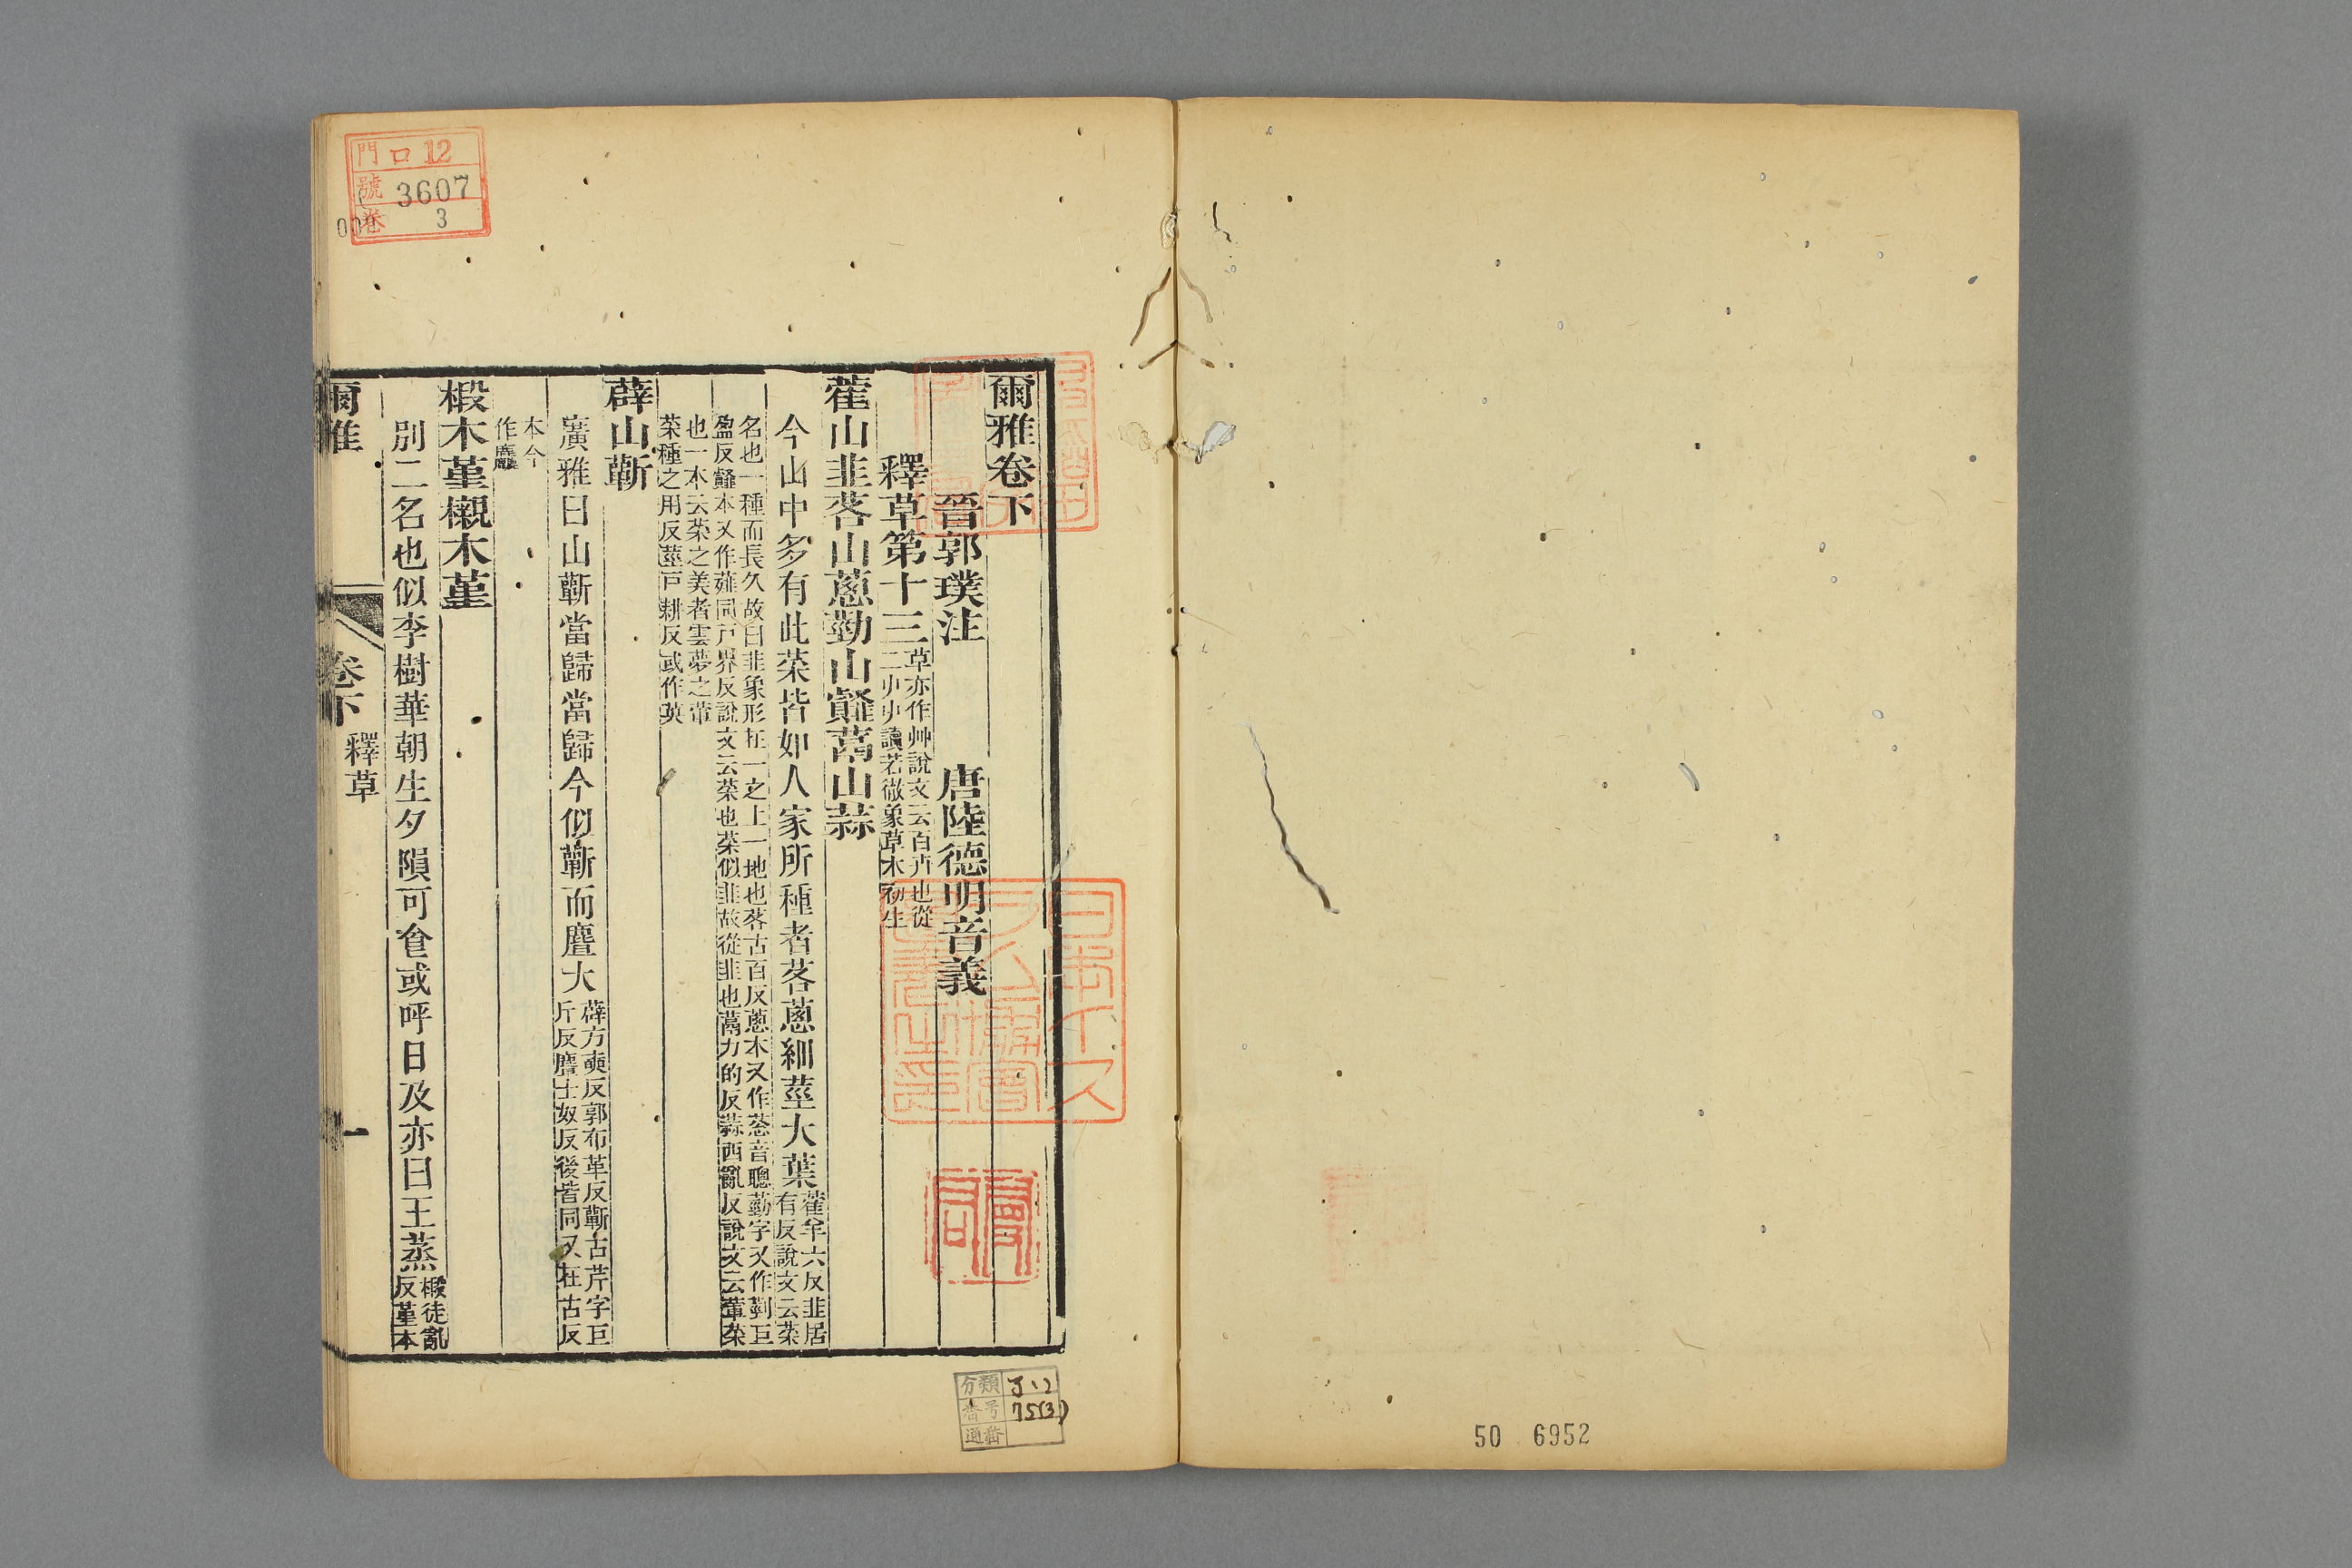 爾雅卷下
晉郭璞注 唐陸德明音義
釋草第十三
草亦作艸說文云百卉也從
二屮屮讀若徹象草木初生
藿山韭茖山蔥勤山䪥蒚山蒜
今山中多有此菜皆如人家所種者茖蔥細莖大葉
藿羊六反韭居
有反說文云菜
名也一種而長久故曰韭象形在一之上一地也茖古百反蔥本又作䓗音聰勤字又作葝巨
盈反䪥本又作薤同戸界反說文云菜也菜似韭故從韭也蒚力的反蒜西亂反說文云葷菜
也一本云菜之美者雲夢之葷
菜種之用反莖戸耕反或作英
薜山蘄
廣雅曰山蘄當歸當歸今似蘄而麆大
薜方奭反郭布革反蘄古芹字巨
斤反麆士奴反後皆同又在古反
本今
作麤
椴木堇櫬木堇
別二名也似李樹華朝生夕隕可食或呼日及亦曰王蒸
椴徒亂
反堇本
爾雅
卷下
釋草
一
門 口12
號 3607
卷 3
分類
番号 75(3)
通番
50 6952